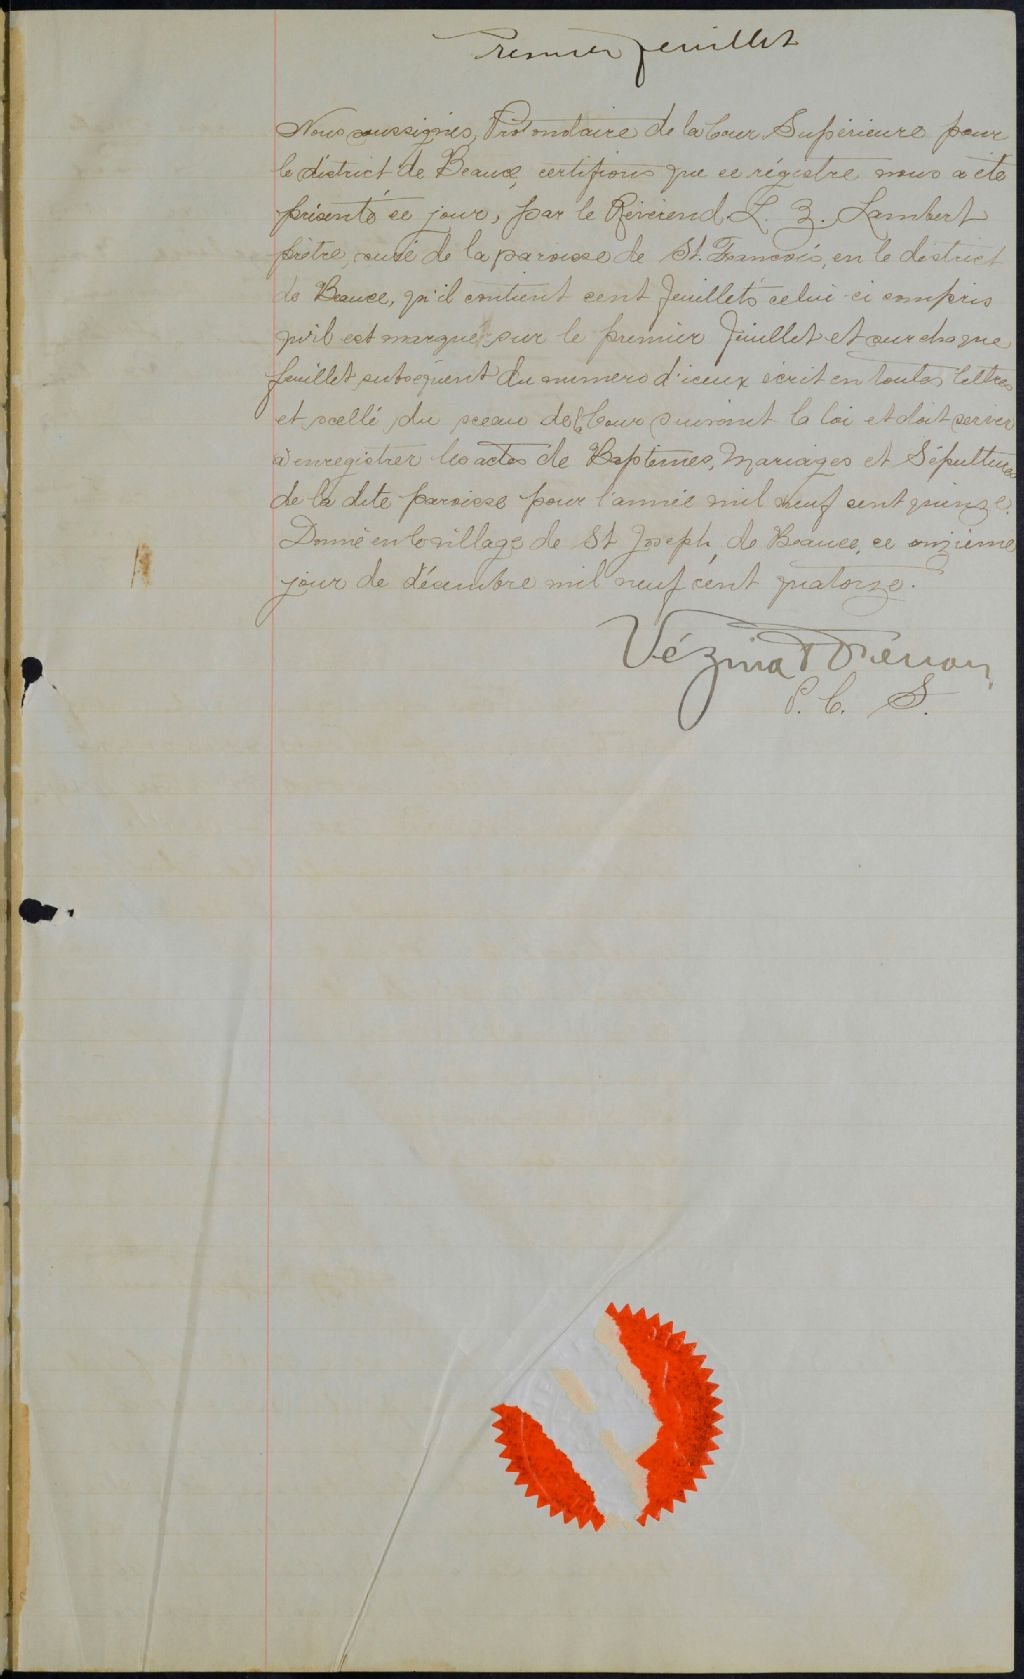 Premier feuillet
Nous soussignés, Protonotaire de la Cour Supérieure pour
le district de Beauce, certifions que ce régistre nous a été
présenté ce jour, par le Révérend L. Z. Lambert
prêtre, curé de la paroisse de St. François, en le district
de Beauce, qu'il contient cent feuillets celui-ci compris
qu'il est marqué sur le premier feuillet et sur chaque
feuillet subséquent du numéro d'iceux écrit en toutes lettres
et scellé du sceau de la Cour suivant la loi et doit servir
à enregistrer les actes de Baptêmes, Mariages et Sépultures
de la dite paroisse pour l'année mil neuf cent quinze.
Donné en le village de St Joseph, de Beauce, ce onzième
jour de décembre mil neuf cent quatorze.
Vézina &
P. C. S.